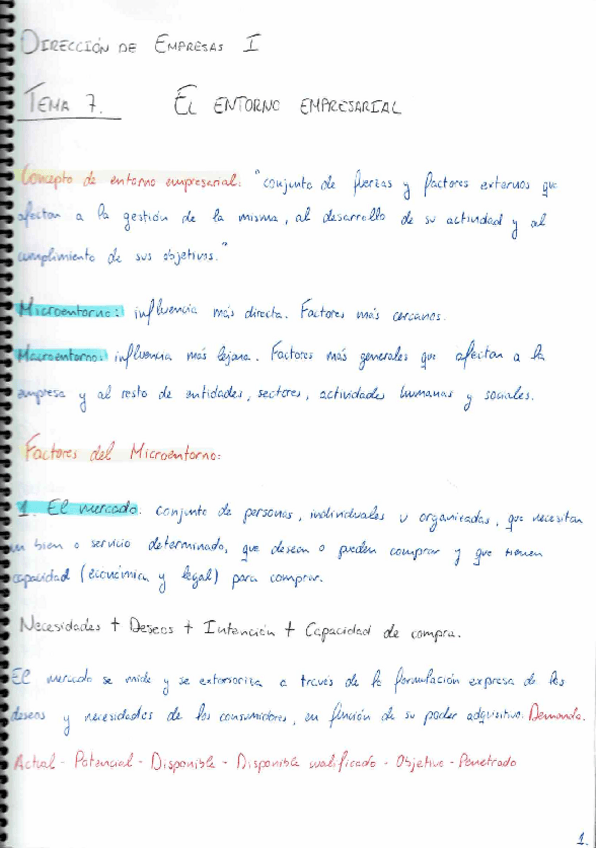 DIRECCIÓN DE EMPRESAS I
TEMA 7. EL ENTORNO EMPRESARIAL
Concepto de entorno empresarial: "conjunto de fuerzas y factores externos que
afectan a la gestión de la misma, al desarrollo de su actividad y al
cumplimiento de sus objetivos."
Microentorno: influencia más directa. Factores más cercanos.
Macroentorno: influencia más lejana. Factores más generales que afectan a la
empresa y al resto de entidades, sectores, actividades humanas y sociales.
Factores del Microentorno:
1. El mercado: conjunto de personas, individuales u organizadas, que necesitan
un bien o servicio determinado, que desean o pueden comprar y que tienen
capacidad (económica y legal) para comprar.
Necesidades + Deseos + Intención + Capacidad de compra.
El mercado se mide y se exterioriza a través de la formulación expresa de los
deseos y necesidades de los consumidores, en función de su poder adquisitivo. Demanda.
Actual - Potencial - Disponible - Disponible cualificado - Objetivo - Penetrado
1.